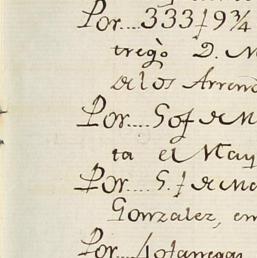 Por....333ƒ9¾
tregò D. M
de los Arren
Por....50ƒ de M
ta el May
Por....5.ƒ de M
Gonzalez, en
Por....